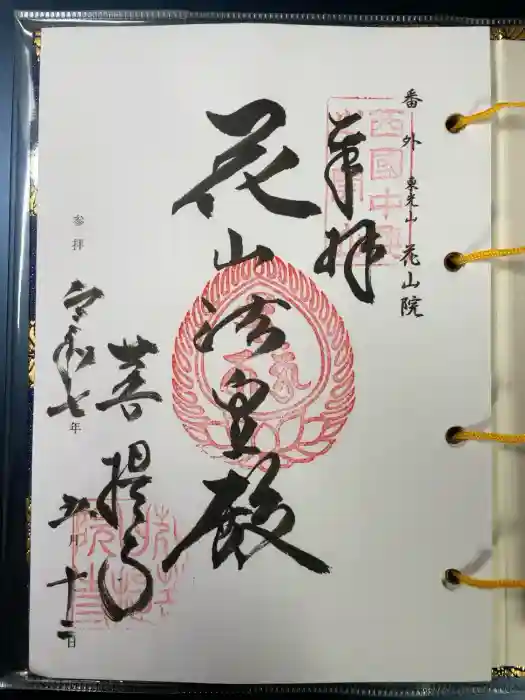 番外 東光山 花山院
奉拝
西國中興
花山法皇殿
菩提寺
参拝 令和七年 五月 十二日